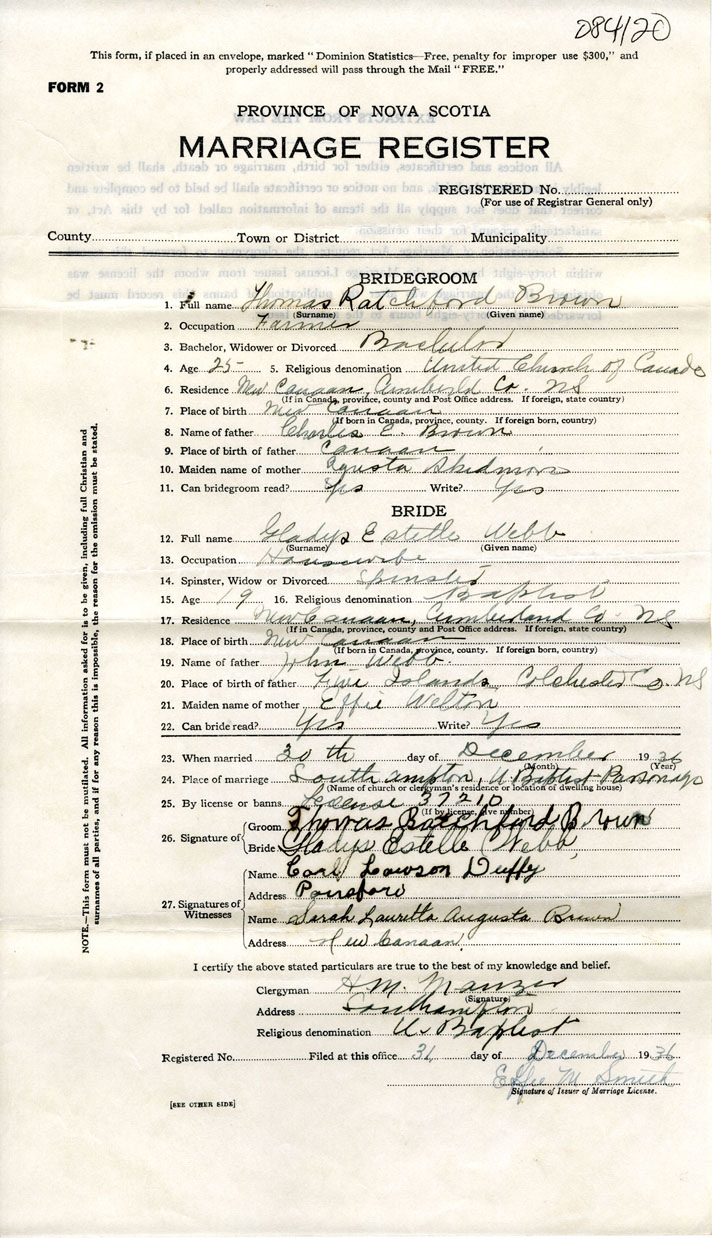 084120
This form, if placed in an envelope, marked "Dominion Statistics—Free, penalty for improper use $300," and
properly addressed will pass through the Mail "FREE."
FORM 2
PROVINCE OF NOVA SCOTIA
MARRIAGE REGISTER
REGISTERED No.
(For use of Registrar General only)
County Town or District Municipality
BRIDEGROOM
1. Full name Thomas Ratchford Brown
(Surname) (Given name)
2. Occupation Farmer
3. Bachelor, Widower or Divorced Bachelor
4. Age 25 5. Religious denomination United Church of Canada
6. Residence New Canaan, Cumberld Co. NS
(If in Canada, province, county and Post Office address. If foreign, state country)
7. Place of birth New Canaan
(If born in Canada, province, county. If foreign born, country)
8. Name of father Charles E. Brown
9. Place of birth of father Canaan
10. Maiden name of mother Agusta Skidmore
11. Can bridegroom read? Yes Write? Yes
BRIDE
12. Full name Gladys Estelle Webb
(Surname) (Given name)
13. Occupation
14. Spinster, Widow or Divorced Spinster
15. Age 19 16. Religious denomination Baptist
17. Residence New Canaan, Cumberland Co. NS
(If in Canada, province, county and Post Office address. If foreign, state country)
18. Place of birth New Canaan
(If born in Canada, province, county. If foreign born, country)
19. Name of father John Webb.
20. Place of birth of father Five Islands, Colchester Co. NS
21. Maiden name of mother Effie Welton
22. Can bride read? Yes Write? Yes
23. When married 30th day of December 1936
(Month) (Year)
24. Place of marriage Southampton, U. Baptist Parsonage
(Name of church or clergyman's residence or location of dwelling house)
25. By license or banns License 37210
(If by license, give number)
26. Signature of
Groom Thomas Ratchford Brown
Bride Gladys Estelle Webb
27. Signatures of Witnesses
Name Carl Lawson Duffy
Address
Name Sarah Lauretta Augusta Brown
Address New Canaan
I certify the above stated particulars are true to the best of my knowledge and belief.
Clergyman H. M. Manzer
(Signature)
Address Southampton
Religious denomination U. Baptist
Registered No. Filed at this office 31 day of December 1936
Effie M Smith
Signature of Issuer of Marriage License.
[SEE OTHER SIDE]
NOTE.—This form must not be mutilated. All information asked for is to be given, including full Christian and
surnames of all parties, and if for any reason this is impossible, the reason for the omission must be stated.